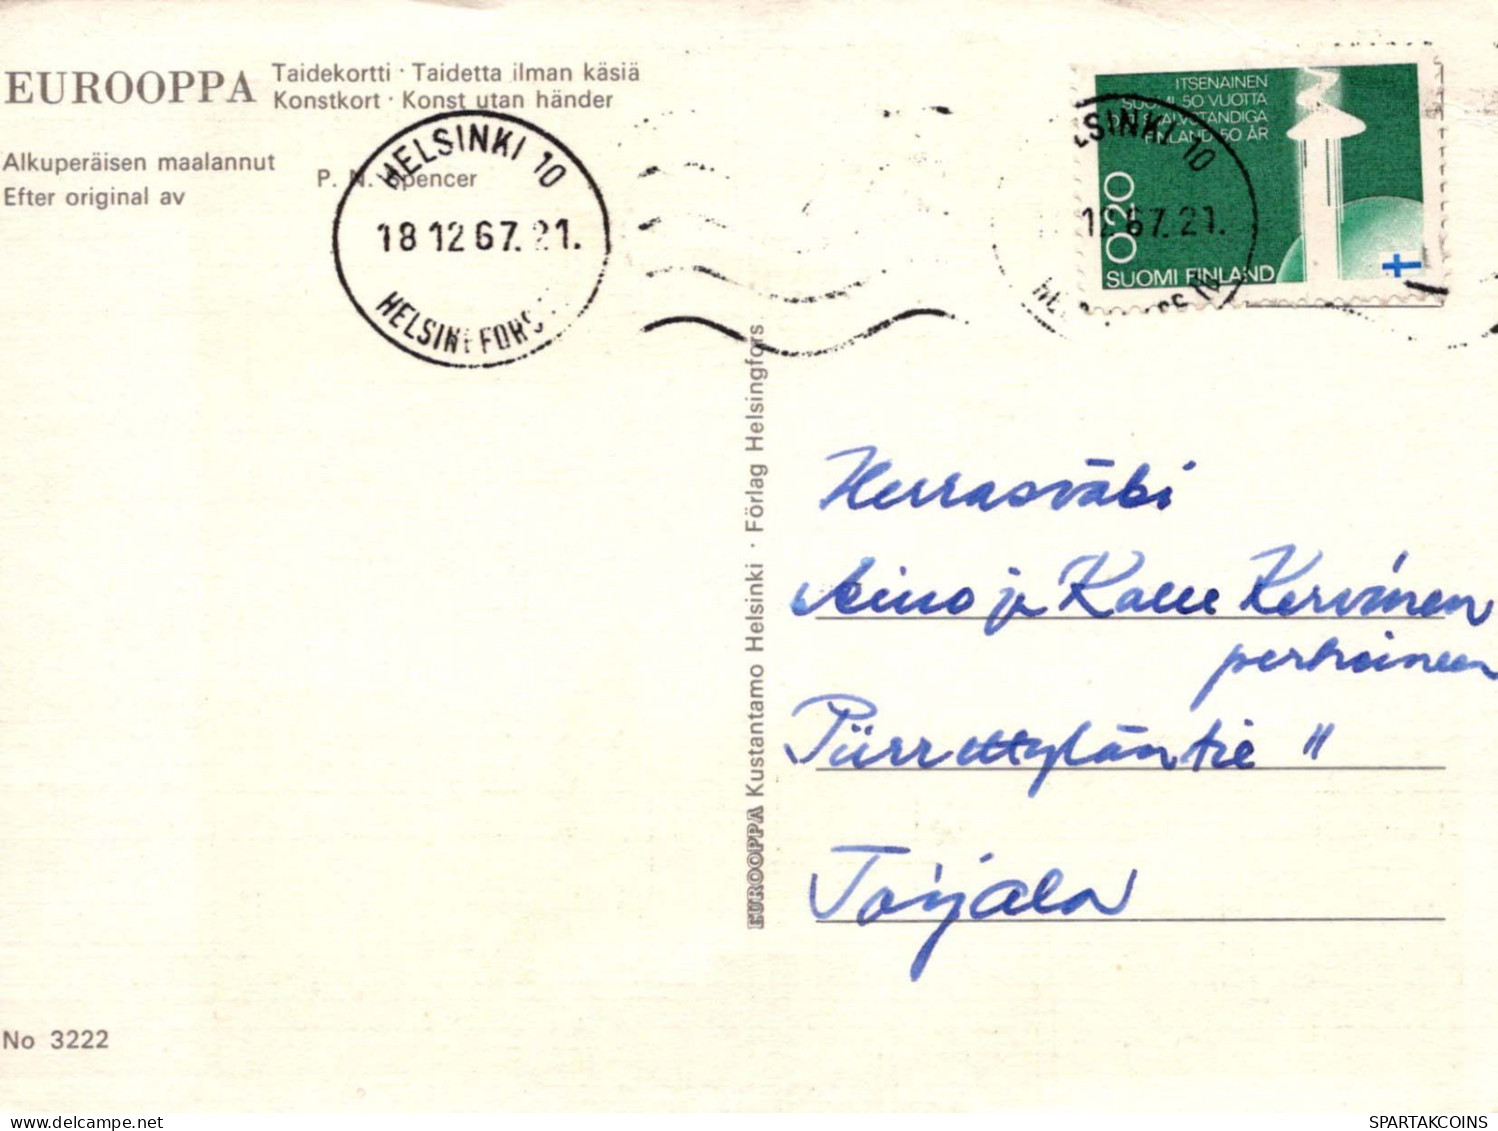 EUROOPPA
Taidekortti · Taidetta ilman käsiä
Konstkort · Konst utan händer
Alkuperäisen maalannut
Efter original av
P. N. Spencer
HELSINKI 10
18 12 67. 21.
HELSINGFORS
ITSENÄINEN
SUOMI 50 VUOTTA
SJÄLVSTÄNDIGA
FINLAND 50 ÅR
0,20
SUOMI FINLAND
LSINKI 10
12 67. 21.
EUROOPPA Kustantamo Helsinki · Förlag Helsingfors
Herrasväki
Aino ja Kalle Kervinen
perheineen
Toijala
No 3222
SPARTAKCOINS